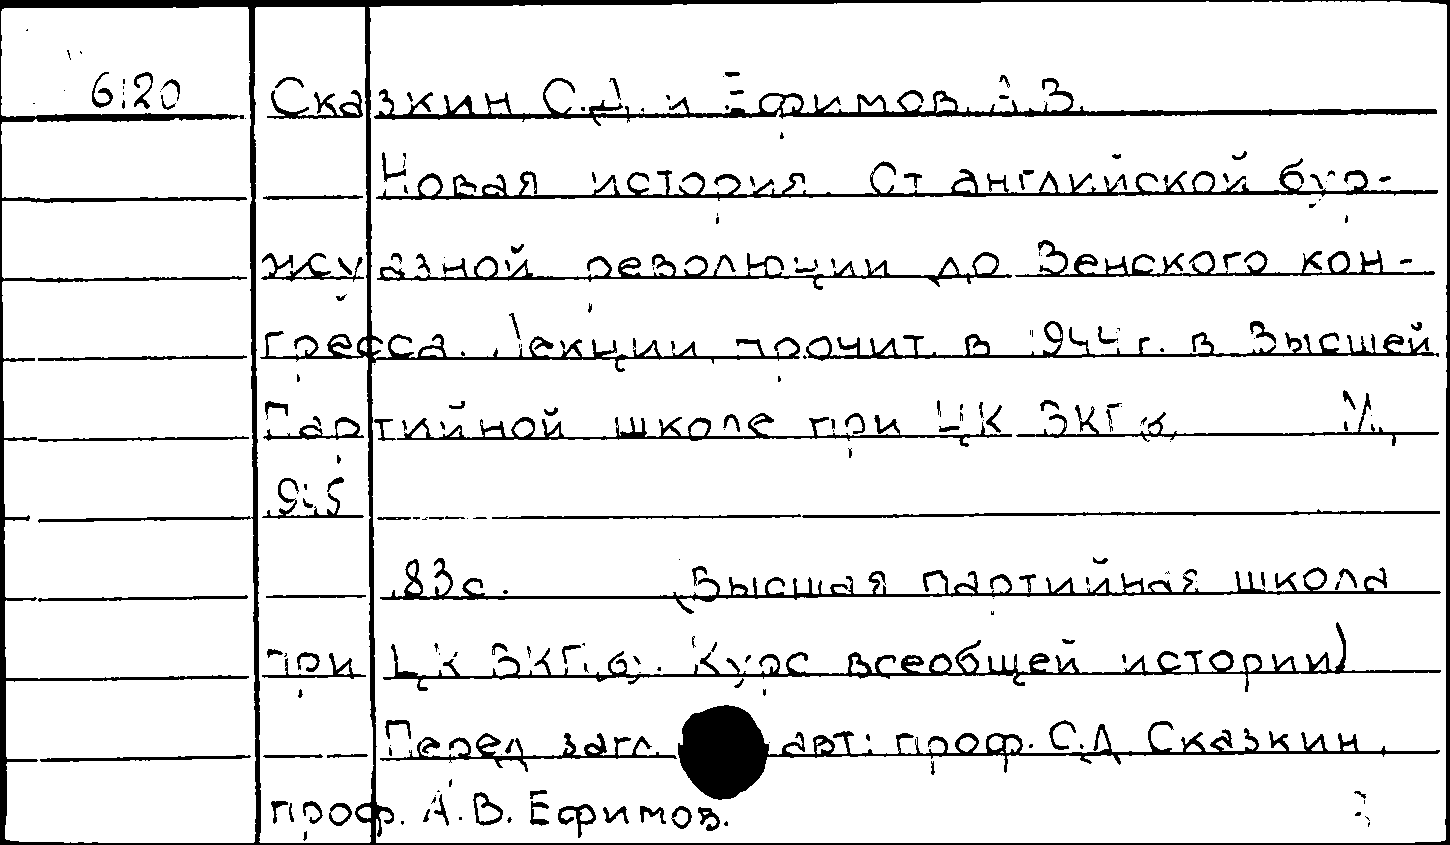 6120 Сказкин, С.Д. и Ефимов, А.В.
Новая история. От английской бур-
жуазной революции до Венского кон-
гресса. Лекции, прочит. в 1944 г. в Высшей
Партийной школе при ЦК ВКП(б). М.,
1945
83 с. (Высшая партийная школа
при ЦК ВКП(б). Курс всеобщей истории)
Перед загл. авт: проф. С.Д. Сказкин,
проф. А.В. Ефимов.